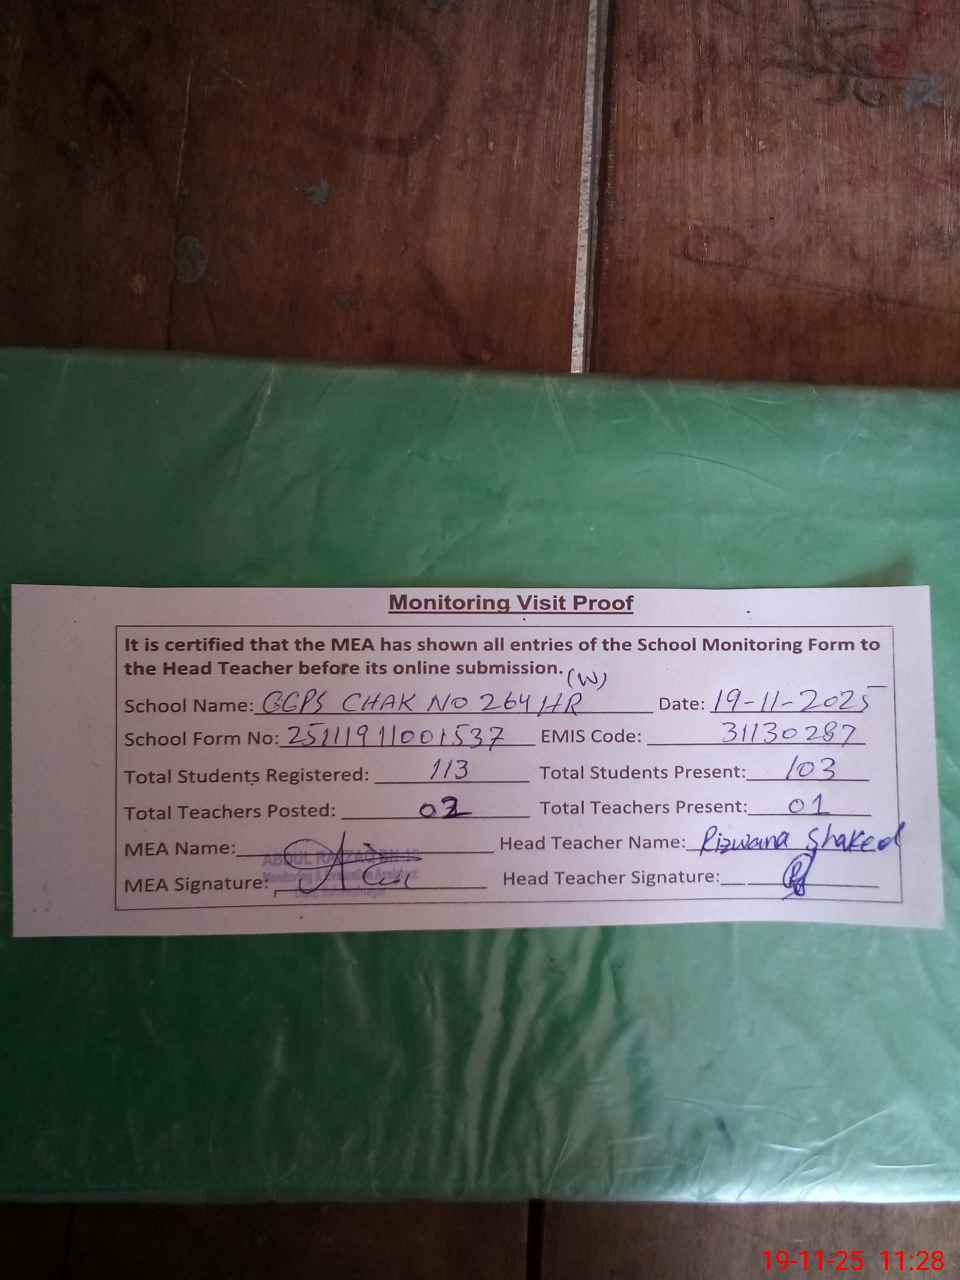 Monitoring Visit Proof
It is certified that the MEA has shown all entries of the School Monitoring Form to
the Head Teacher before its online submission.
(W)
School Name: GGPS CHAK NO 264 HR Date: 19-11-2025
School Form No: 25111911001537 EMIS Code: 31130287
Total Students Registered: 113 Total Students Present: 103
Total Teachers Posted: 02 Total Teachers Present: 01
MEA Name: ABDUL RAZZAQ Head Teacher Name: Rizwana Shaked
MEA Signature: Head Teacher Signature:
19-11-25 11:28